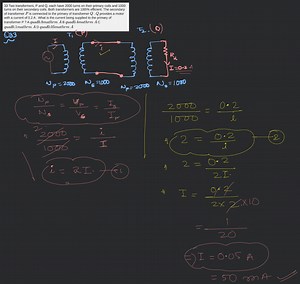 20 Two transformers, P and Q, each have 2000 turns on their primary coils and 1000
turns on their secondary coils. Both transformers are 100% efficient. The secondary
of transformer P is connected to the primary of transformer Q. Q provides a motor
with a current of 0.2 A. What is the current being supplied to the primary of
transformer P?
T₁(P)
T₂(Q)
I=0.2A
Np=2000
Ns=1000
Np=2000
Ns=1000
Np/Ns = Vp/Vs = Is/Ip
2000/1000 = i/I
i = 2I -①
2000/1000 = 0.2/i
2 = 0.2/i -②
2 = 0.2/2I
I = 0.2/2×2×10
= 1/20
⇒ I = 0.05 A
= 50 mA